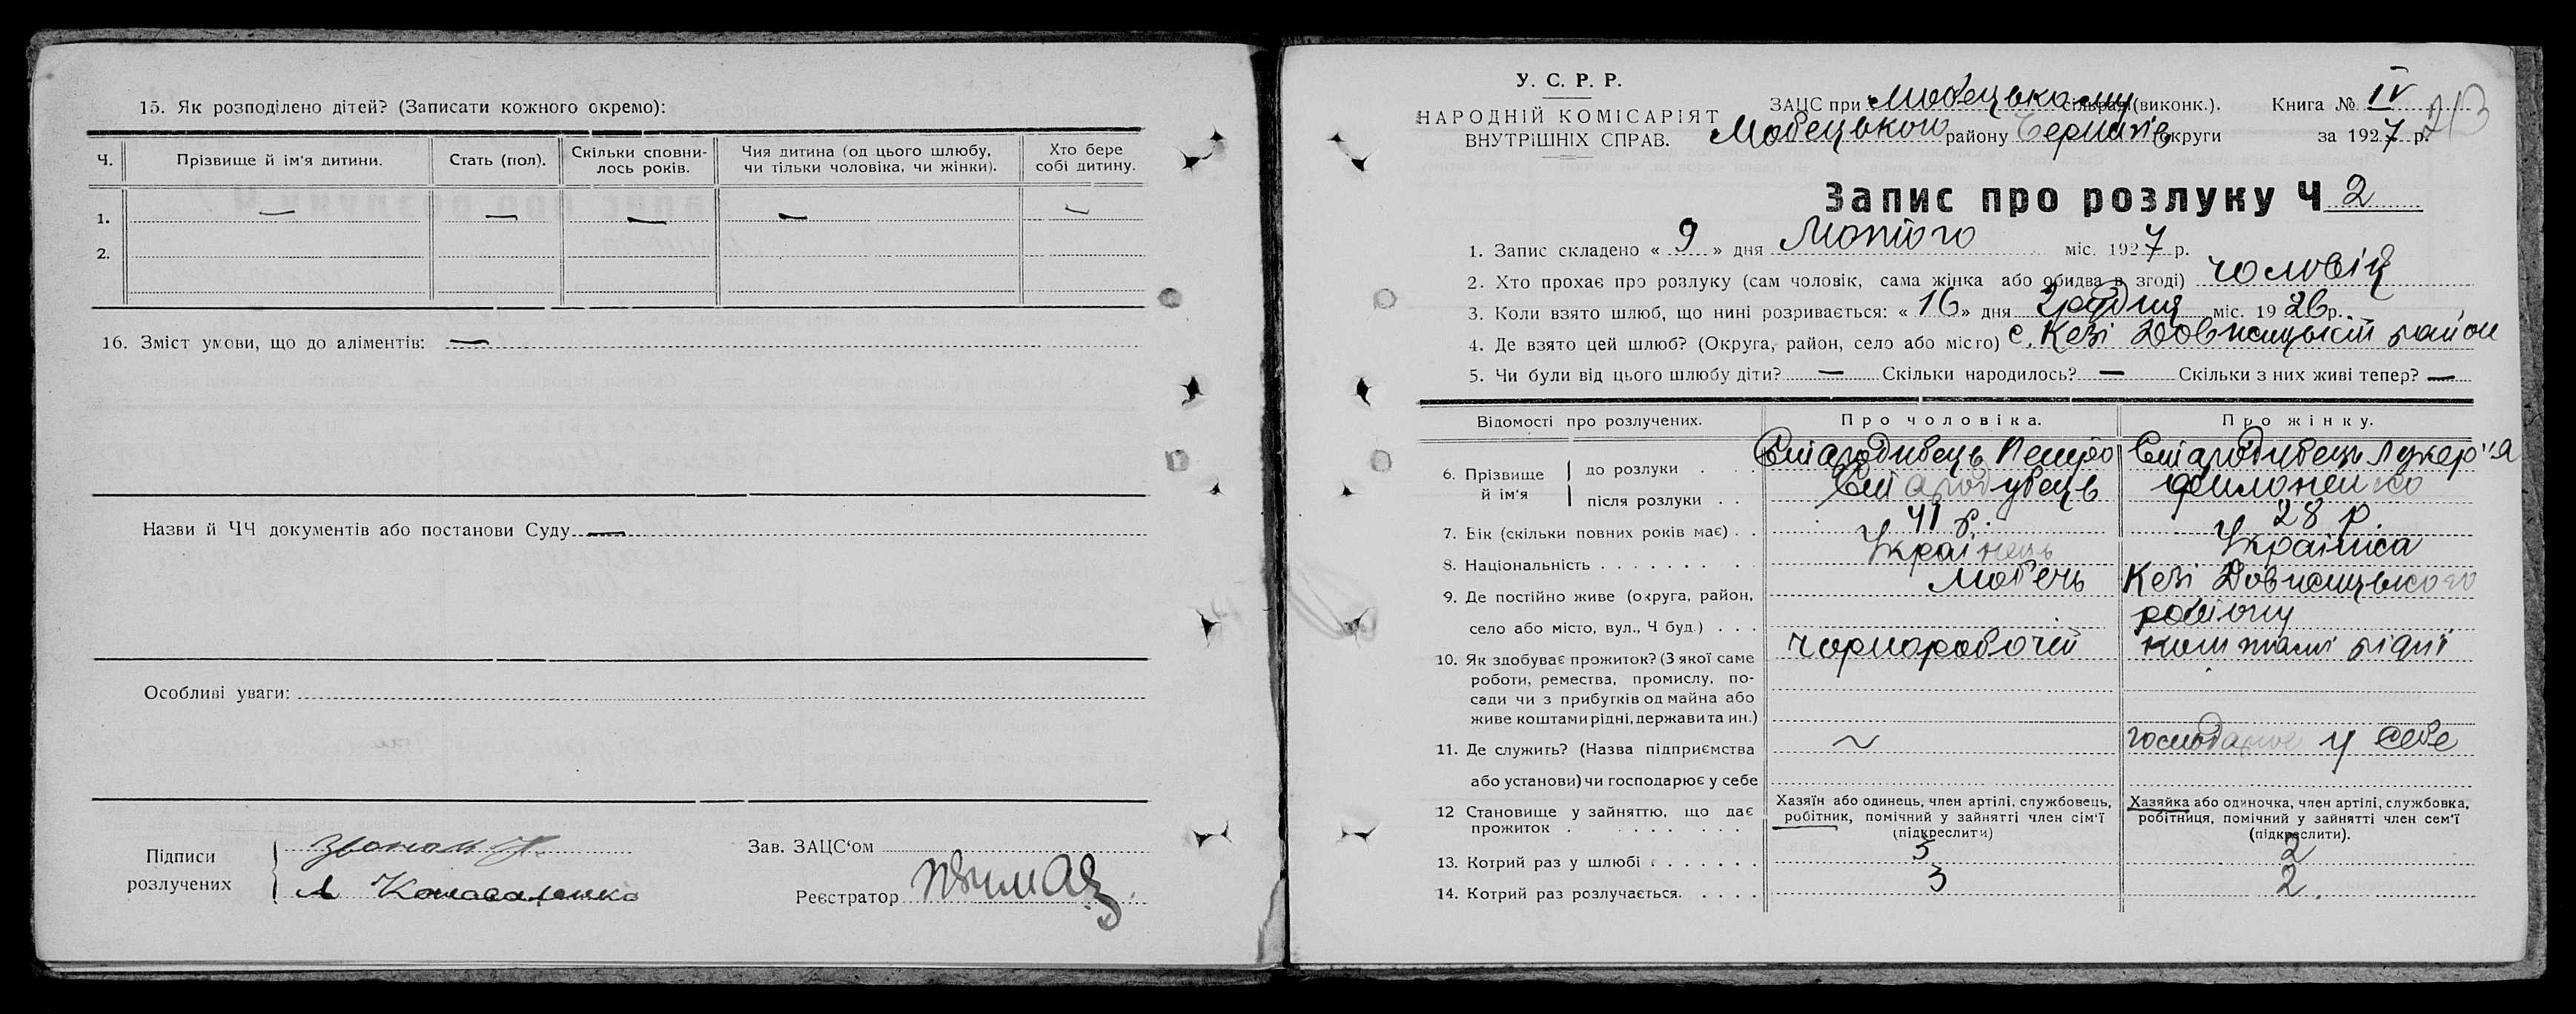 15. Як розподілено дітей? (Записати кожного окремо):
Ч. Прізвище й ім'я дитини. Стать (пол). Скільки сповни-лось років. Чия дитина (од цього шлюбу, чи тільки чоловіка, чи жінки). Хто бере собі дитину.
1. — — — — —
2.
16. Зміст умови, що до аліментів: —
Назви й ЧЧ документів або постанови Суду —
Особливі уваги:
Підписи розлучених
Зав. ЗАЦС'ом
Реєстратор
У. С. Р. Р.
НАРОДНІЙ КОМІСАРІЯТ
ВНУТРІШНІХ СПРАВ.
ЗАЦС при Любецькому сільраді (виконк.). Книга № IV
213
Любецького району Черниг округи за 1927 р.
Запис про розлуку Ч 2
1. Запис складено « 9 » дня Лютого міс. 1927 р.
2. Хто прохає про розлуку (сам чоловік, сама жінка або обидва в згоді) чоловік
3. Коли взято шлюб, що нині розривається: « 16 » дня Грудня міс. 1926 р.
4. Де взято цей шлюб? (Округа, район, село або місто) с. Кезі район
5. Чи були від цього шлюбу діти? — Скільки народилось? — Скільки з них живі тепер? —
Відомості про розлучених. Про чоловіка. Про жінку.
6. Прізвище й ім'я
до розлуки . . Стародубець Петро Стародубець Лукер'я
після розлуки . . Стародубець Филоненко
7. Вік (скільки повних років має) . . 41 р. 28 р.
8. Національність . . . . . . . . Українець Українка
9. Де постійно живе (округа, район, село або місто, вул., Ч буд.) . . . Любеч Кезі району
10. Як здобуває прожиток? (З якої саме роботи, ремества, промислу, по-сади чи з прибутків од майна або живе коштами рідні, держави та ин.) чорноробочій коштами рідні
11. Де служить? (Назва підприємства або установи) чи господарює у себе ~ господарює у себе
12 Становище у зайняттю, що дає прожиток . . . . . . . .
Хазяїн або одинець, член артілі, службовець, робітник, помічний у зайнятті член сім'ї (підкреслити)
Хазяйка або одиночка, член артілі, службовка, робітниця, помічний у зайнятті член сем'ї (підкреслити).
13. Котрий раз у шлюбі . . . . . . . 3 2
14. Котрий раз розлучається. . . . . 3 2.